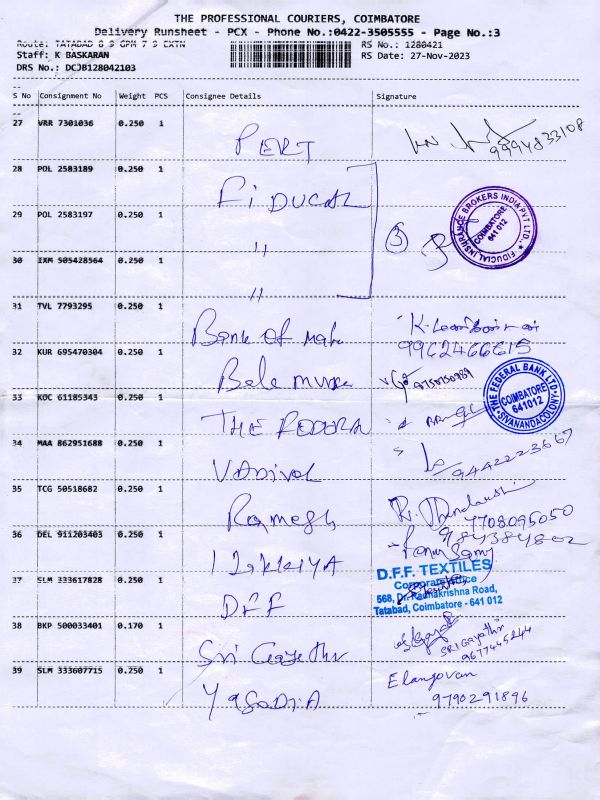 THE PROFESSIONAL COURIERS, COIMBATORE
Delivery Runsheet - PCX - Phone No.:0422-3505555 - Page No.:3
Route: TATABAD 8 9 GPM 7 9 EXTN
RS No.: 1280421
Staff: K BASKARAN
RS Date: 27-Nov-2023
DRS No.: DCJB128042103
S No Consignment No Weight PCS Consignee Details Signature
27 VRR 7301036 0.250 1 PERT 9994833108
28 POL 2583189 0.250 1 FiDUCAL
29 POL 2583197 0.250 1 "
3
FIDUCIAL INSURANCE BROKERS INDIA PVT LTD.,
COIMBATORE
641 012
30 IXM 505428564 0.250 1 "
31 TVL 7793295 0.250 1 Bank of maha
9962466615
32 KUR 695470304 0.250 1 9750750989
33 KOC 61185343 0.250 1 THE FEDERA
THE FEDERAL BANK LTD.
COIMBATORE
641012
SIVANANDACOLONY
34 MAA 862951688 0.250 1 VADIVOL 9442223667
35 TCG 50518682 0.250 1 Ramesh
7708095050
36 DEL 911203403 0.250 1 ILAKKIYA 9843384802
37 SLM 333617828 0.250 1 DFF
D.F.F. TEXTILES
Corporate Office
568, Dr. Radhakrishna Road,
Tatabad, Coimbatore - 641 012
38 BKP 500033401 0.170 1 Sri Gayethr
SRI Gayathri
9677445244
39 SLM 333607715 0.250 1 YASODJA Elangovan
9790291896